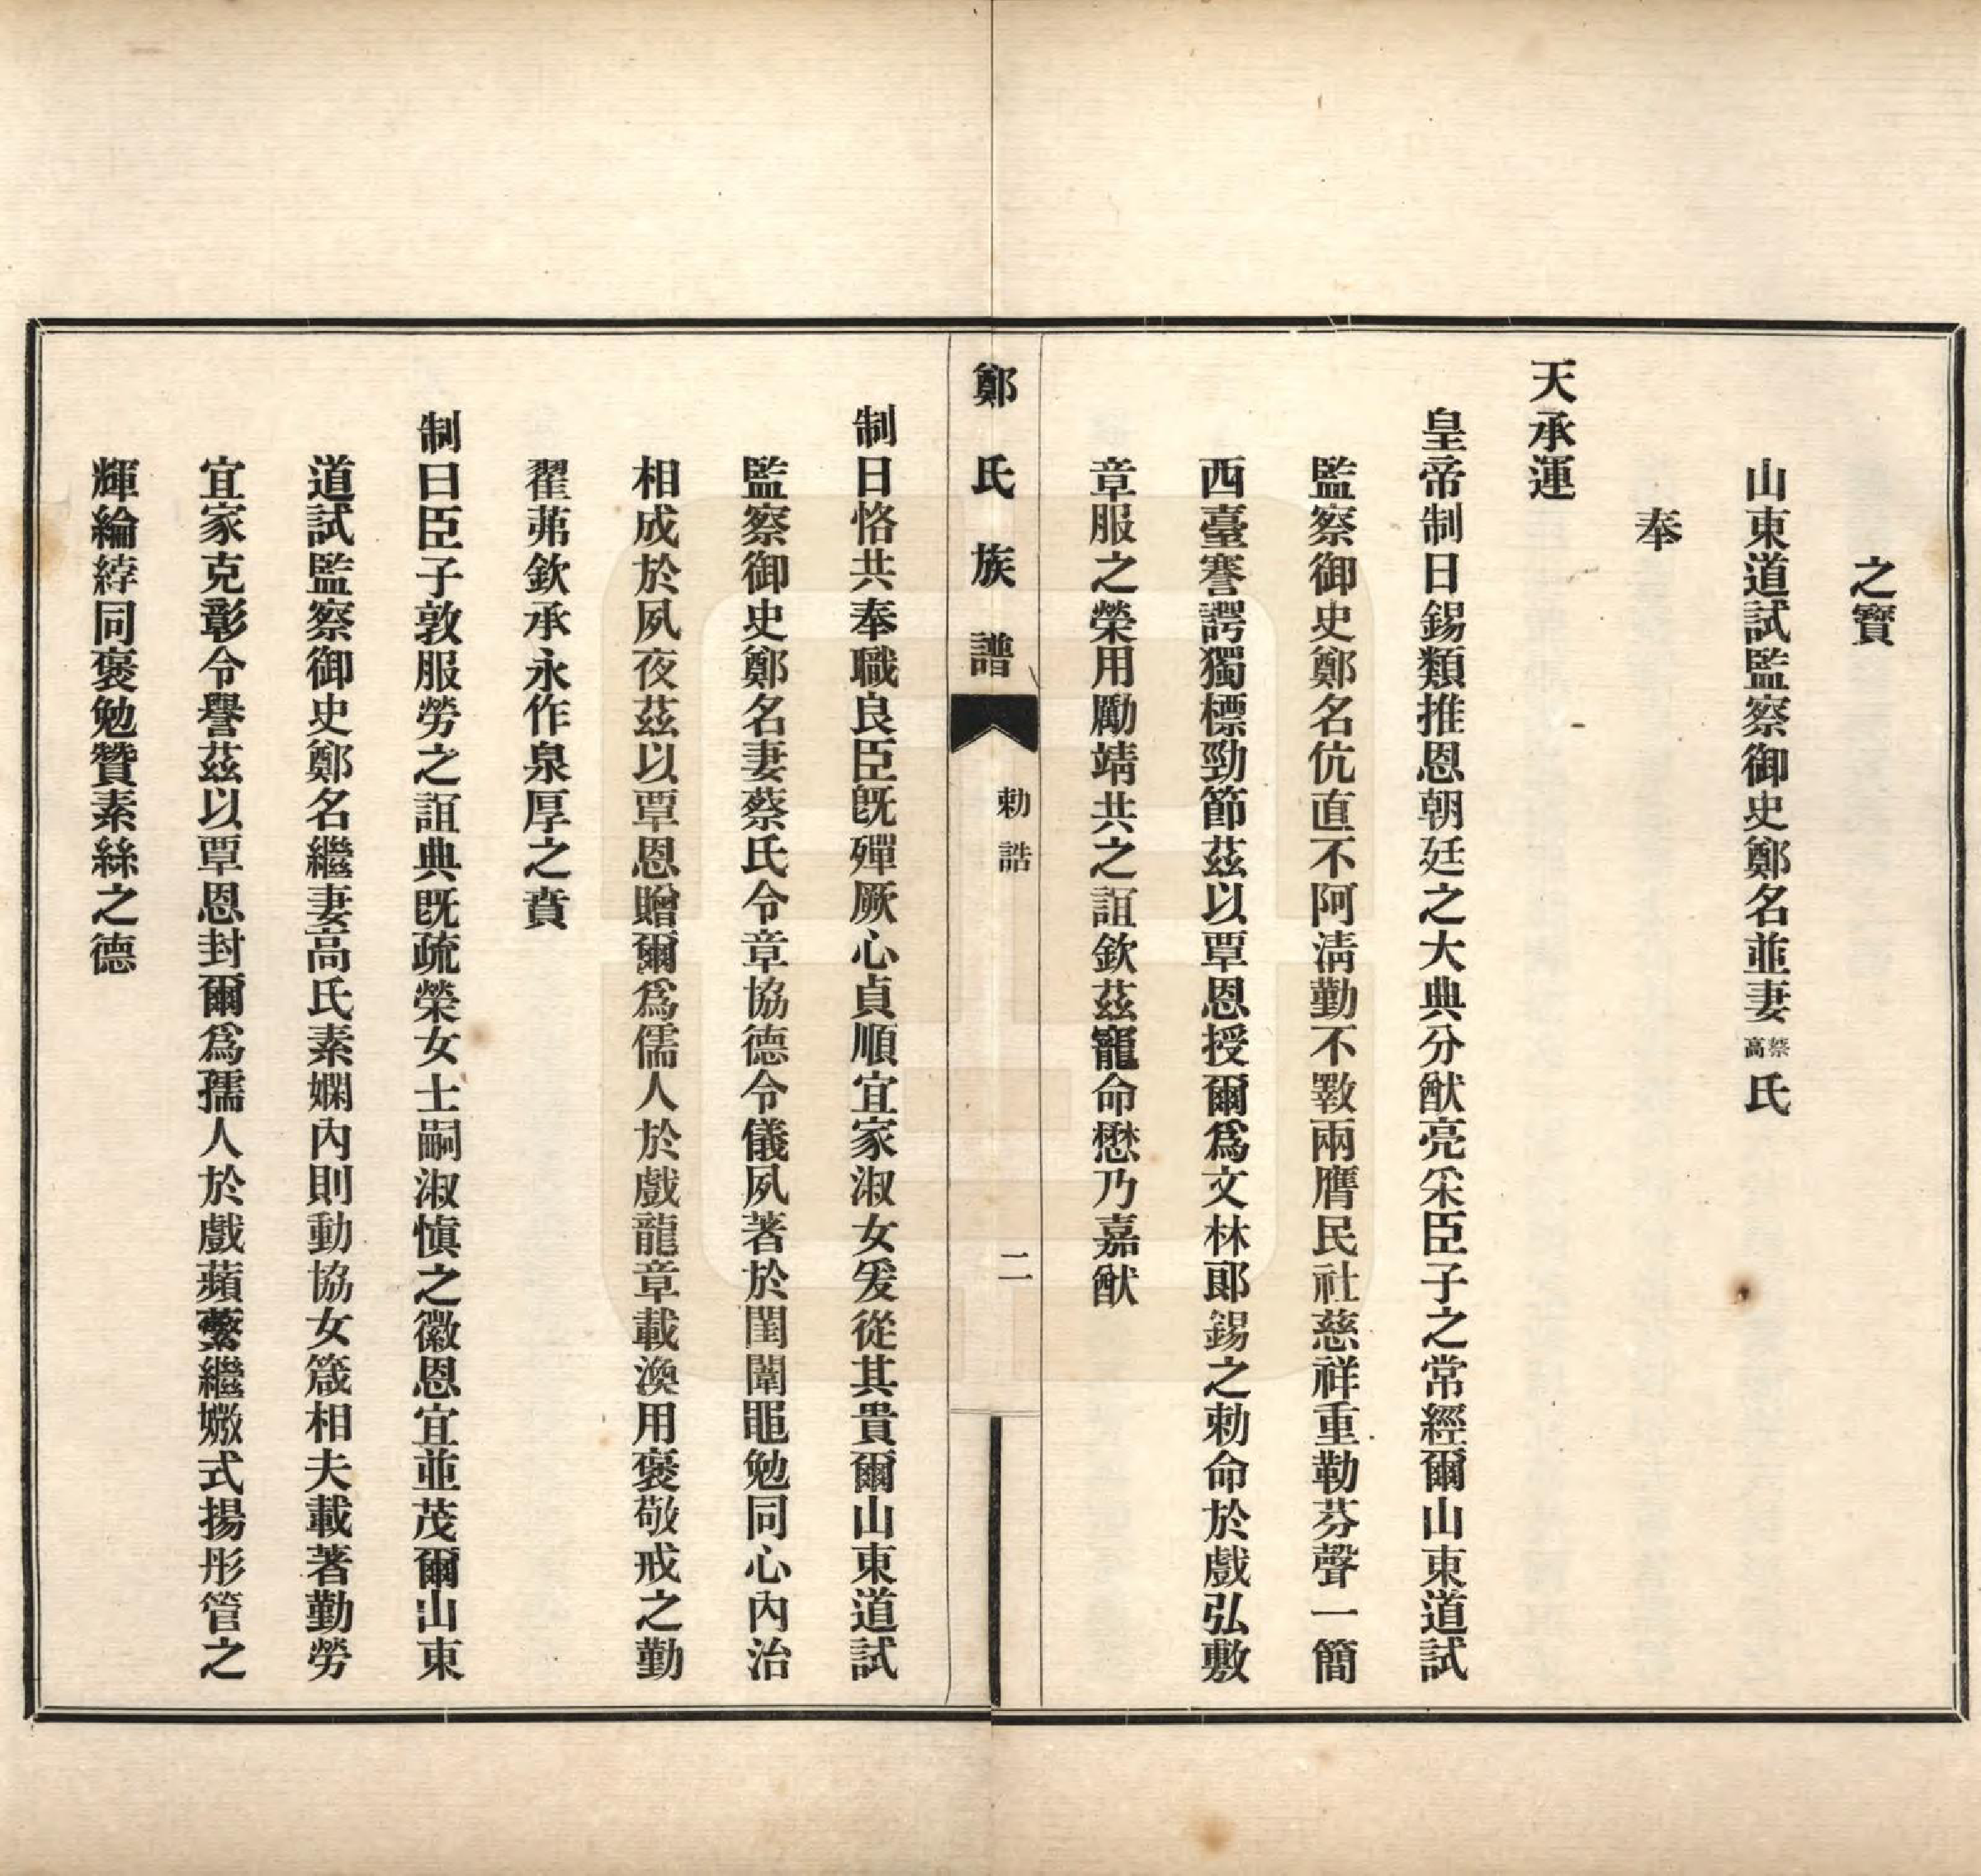 之寶
山東道試監察御史鄭名並妻蔡高氏
奉
天承運
皇帝制日錫類推恩朝廷之大典分猷亮采臣子之常經爾山東道試
監察御史鄭名伉直不阿清勤不斁兩膺民社慈祥重勒芬聲一簡
西臺謇諤獨標勁節茲以覃恩授爾爲文林郎錫之勅命於戲弘敷
章服之榮用勵靖共之誼欽茲寵命懋乃嘉猷
鄭氏族譜
勅誥
二
制日恪共奉職良臣既殫厥心貞順宜家淑女爰從其貴爾山東道試
監察御史鄭名妻蔡氏令章協德令儀夙著於閨闈黽勉同心內治
相成於夙夜茲以覃恩贈爾爲儒人於戲龍章載渙用褒敬戒之勤
翟茀欽承永作泉厚之賁
制曰臣子敦服勞之誼典既疏榮女士嗣淑愼之徽恩宜並茂爾山東
道試監察御史鄭名繼妻高氏素嫻內則動協女箴相夫載著勤勞
宜家克彰令譽茲以覃恩封爾爲孺人於戲蘋蘩繼媺式揚彤管之
輝綸綍同褒勉贊素絲之德